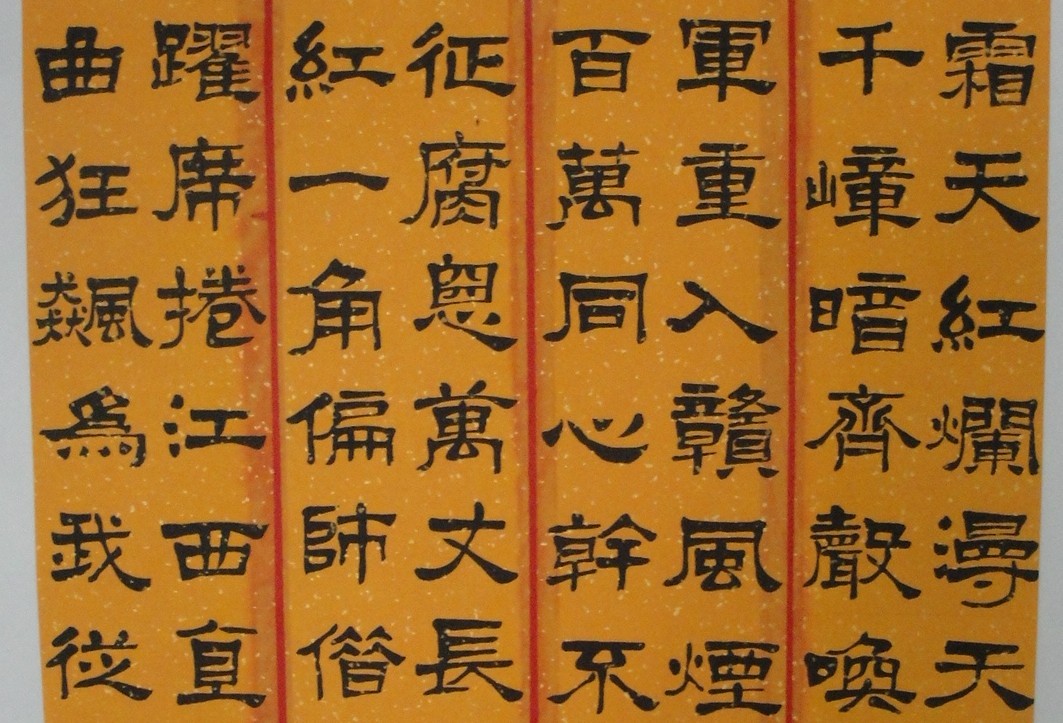 霜天紅爛漫天
千嶂暗齊聲喚
軍重入贛風煙
百萬同心幹不
征腐惡萬丈長
紅一角偏師借
躍席捲江西直
曲狂飆為我從